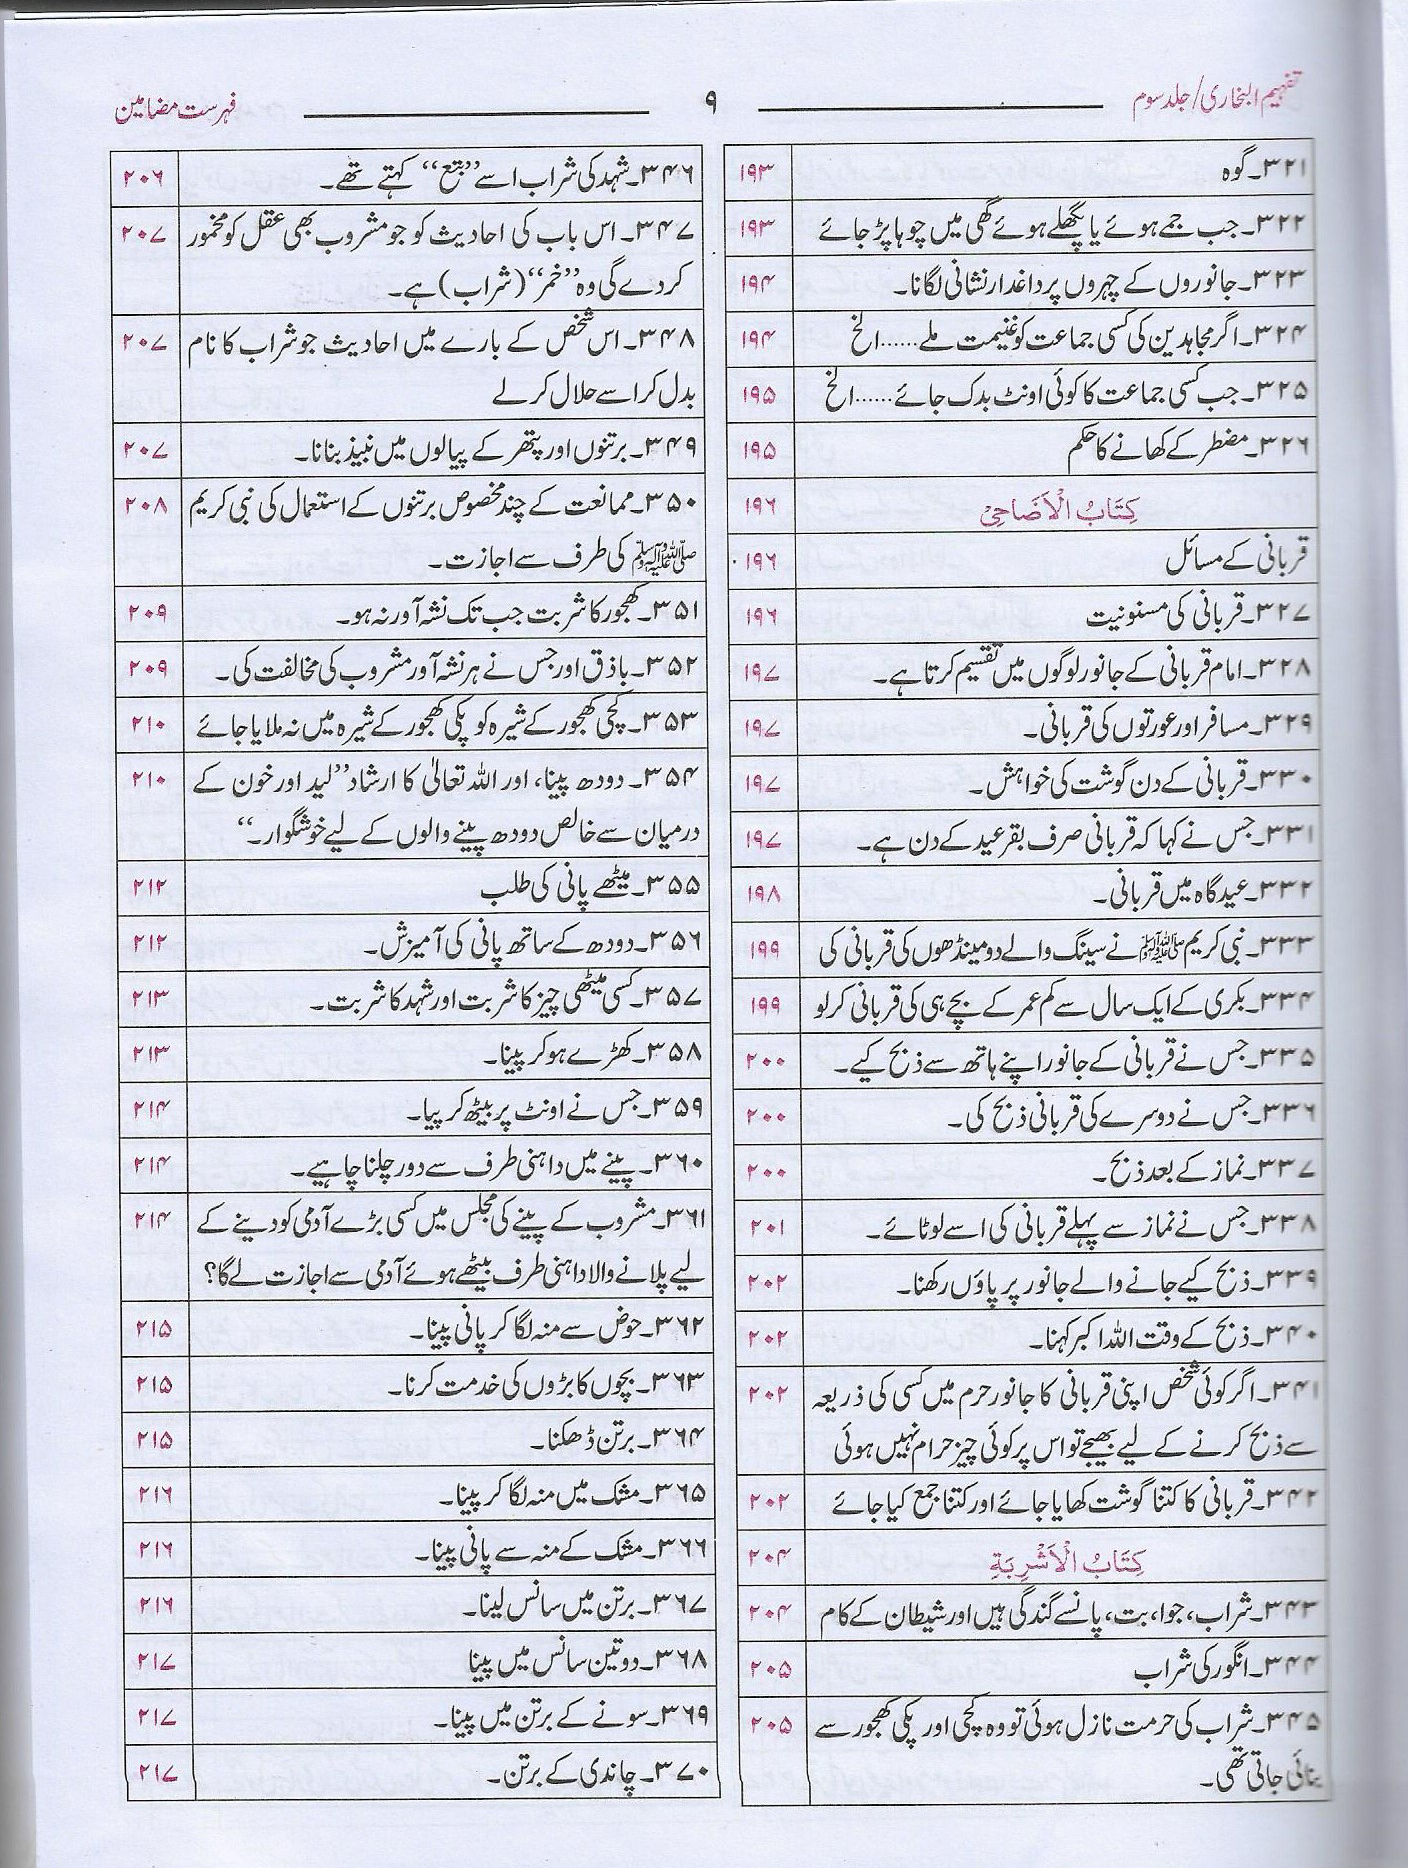 تفہیم البخاری/جلد سوم
۹
فہرست مضامین
۳۲۱۔گوہ ۱۹۳
۳۲۲۔جب جمے ہوئے یا پگھلے ہوئے گھی میں چوہا پڑ جائے ۱۹۳
۳۲۳۔جانوروں کے چہروں پر داغدار نشانی لگانا۔ ۱۹۴
۳۲۴۔اگر مجاہدین کی کسی جماعت کو غنیمت ملے......الخ ۱۹۴
۳۲۵۔جب کسی جماعت کا کوئی اونٹ بدک جائے......الخ ۱۹۵
۳۲۶۔مضطر کے کھانے کا حکم ۱۹۵
کِتَابُ الْاَضَاحِیْ ۱۹۶
قربانی کے مسائل ۱۹۶
۳۲۷۔قربانی کی مسنونیت ۱۹۶
۳۲۸۔امام قربانی کے جانور لوگوں میں تقسیم کرتا ہے۔ ۱۹۷
۳۲۹۔مسافر اور عورتوں کی قربانی۔ ۱۹۷
۳۳۰۔قربانی کے دن گوشت کی خواہش۔ ۱۹۷
۳۳۱۔جس نے کہا کہ قربانی صرف بقرعید کے دن ہے۔ ۱۹۷
۳۳۲۔عیدگاہ میں قربانی۔ ۱۹۸
۳۳۳۔نبی کریم ﷺ نے سینگ والے دو مینڈھوں کی قربانی کی ۱۹۹
۳۳۴۔بکری کے ایک سال سے کم عمر کے بچے ہی کی قربانی کر لو ۱۹۹
۳۳۵۔جس نے قربانی کے جانور اپنے ہاتھ سے ذبح کیے۔ ۲۰۰
۳۳۶۔جس نے دوسرے کی قربانی ذبح کی۔ ۲۰۰
۳۳۷۔نماز کے بعد ذبح۔ ۲۰۰
۳۳۸۔جس نے نماز سے پہلے قربانی کی اسے لوٹائے۔ ۲۰۱
۳۳۹۔ذبح کیے جانے والے جانور پر پاؤں رکھنا۔ ۲۰۲
۳۴۰۔ذبح کے وقت اللہ اکبر کہنا۔ ۲۰۲
۳۴۱۔اگر کوئی شخص اپنی قربانی کا جانور حرم میں کسی کی ذریعہ ۲۰۲
سے ذبح کرنے کے لیے بھیجے تو اس پر کوئی چیز حرام نہیں ہوئی
۳۴۲۔قربانی کا کتنا گوشت کھایا جائے اور کتنا جمع کیا جائے ۲۰۲
کِتَابُ الْاَشْرِبَةِ ۲۰۴
۳۴۳۔شراب، جوا، بت، پانسے گندگی ہیں اور شیطان کے کام ۲۰۴
۳۴۴۔انگور کی شراب ۲۰۵
۳۴۵۔شراب کی حرمت نازل ہوئی تو وہ کچی اور پکی کھجور سے ۲۰۵
بنائی جاتی تھی۔
۳۴۶۔شہد کی شراب اسے ”بتع“ کہتے تھے۔ ۲۰۶
۳۴۷۔اس باب کی احادیث کو جو مشروب بھی عقل کو مخمور ۲۰۷
کر دے گی وہ ”خمر“ (شراب) ہے۔
۳۴۸۔اس شخص کے بارے میں احادیث جو شراب کا نام ۲۰۷
بدل کر اسے حلال کر لے
۳۴۹۔برتنوں اور پتھر کے پیالوں میں نبیذ بنانا۔ ۲۰۷
۳۵۰۔ممانعت کے چند مخصوص برتنوں کے استعمال کی نبی کریم ۲۰۸
ﷺ کی طرف سے اجازت۔
۳۵۱۔کھجور کا شربت جب تک نشہ آور نہ ہو۔ ۲۰۹
۳۵۲۔باذق اور جس نے ہر نشہ آور مشروب کی مخالفت کی۔ ۲۰۹
۳۵۳۔کچی کھجور کے شیرہ کو پکی کھجور کے شیرہ میں نہ ملایا جائے ۲۱۰
۳۵۴۔دودھ پینا، اور اللہ تعالیٰ کا ارشاد ”لید اور خون کے ۲۱۰
درمیان سے خالص دودھ پینے والوں کے لیے خوشگوار۔“
۳۵۵۔میٹھے پانی کی طلب ۲۱۲
۳۵۶۔دودھ کے ساتھ پانی کی آمیزش۔ ۲۱۲
۳۵۷۔کسی میٹھی چیز کا شربت اور شہد کا شربت۔ ۲۱۳
۳۵۸۔کھڑے ہو کر پینا۔ ۲۱۳
۳۵۹۔جس نے اونٹ پر بیٹھ کر پیا۔ ۲۱۴
۳۶۰۔پینے میں داہنی طرف سے دور چلنا چاہیے۔ ۲۱۴
۳۶۱۔مشروب کے پینے کی مجلس میں کسی بڑے آدمی کو دینے کے ۲۱۴
لیے پلانے والا داہنی طرف بیٹھے ہوئے آدمی سے اجازت لے گا؟
۳۶۲۔حوض سے منہ لگا کر پانی پینا۔ ۲۱۵
۳۶۳۔بچوں کا بڑوں کی خدمت کرنا۔ ۲۱۵
۳۶۴۔برتن ڈھکنا۔ ۲۱۵
۳۶۵۔مشک میں منہ لگا کر پینا۔ ۲۱۶
۳۶۶۔مشک کے منہ سے پانی پینا۔ ۲۱۶
۳۶۷۔برتن میں سانس لینا۔ ۲۱۶
۳۶۸۔دو تین سانس میں پینا ۲۱۷
۳۶۹۔سونے کے برتن میں پینا۔ ۲۱۷
۳۷۰۔چاندی کے برتن۔ ۲۱۷